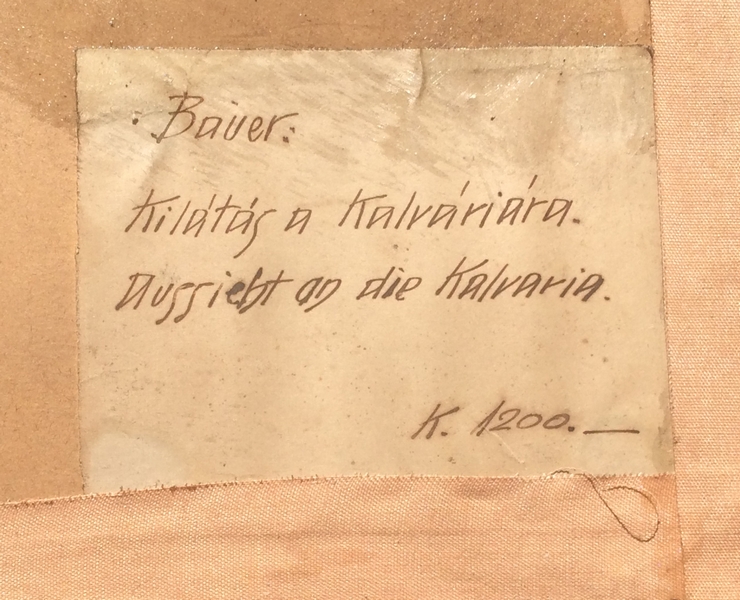 Bauer:
Kilátás a Kalváriára.
Aussicht an die Kalvaria.
K. 1200.—